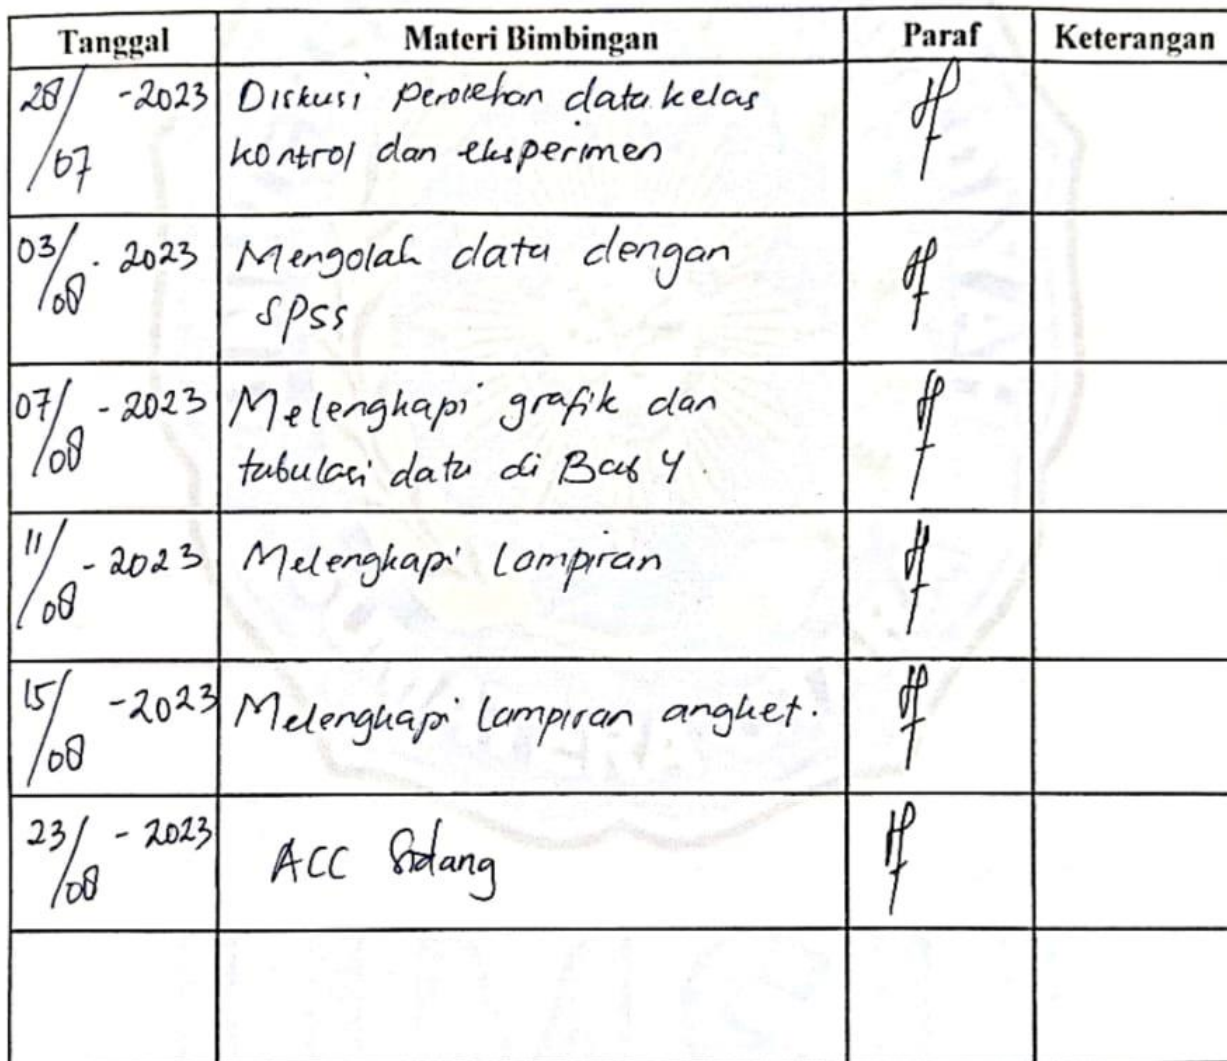 Tanggal Materi Bimbingan Paraf Keterangan
28/07 -2023 Diskusi perolehan data kelas
kontrol dan eksperimen
03/08 - 2023 Mengolah data dengan
SPSS
07/08 - 2023 Melengkapi grafik dan
tabulasi data di Bab 4.
11/08 - 2023 Melengkapi lampiran
15/08 -2023 Melengkapi lampiran angket.
23/08 - 2023 ACC Sidang